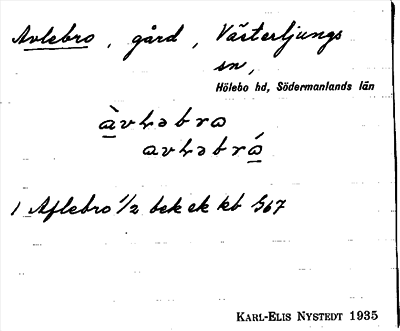 Avlebro, gård, Västerljungs
sn,
Hölebo hd, Södermanlands län
àvLəbrω
avLəbrώ
1 Aflebro 1/2 bek ek kb 567
KARL-ELIS NYSTEDT 1935